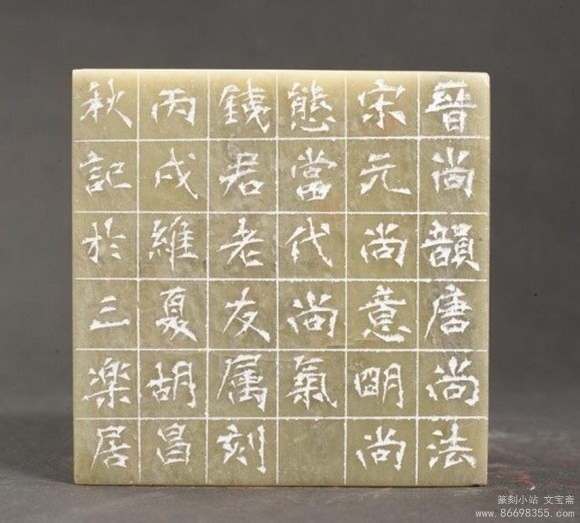 晉尚韻唐尚法
宋元尚意明尚
態當代尚氣
錢君老友属刻
丙戌維夏胡昌
秋記於三楽居
篆刻小站 文宝斋
www.86698355.com